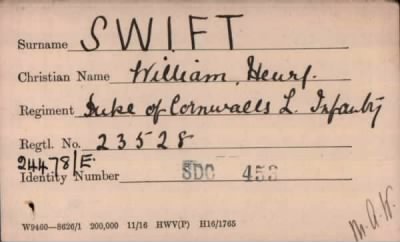 Surname SWIFT
Christian Name William Henry.
Regiment Duke of Cornwalls L. Infantry
Regtl. No. 23528
24478/E.
Identity Number SDC 453
W9460—8626/1 200,000 11/16 HWV(P) H16/1765
M.A.W.